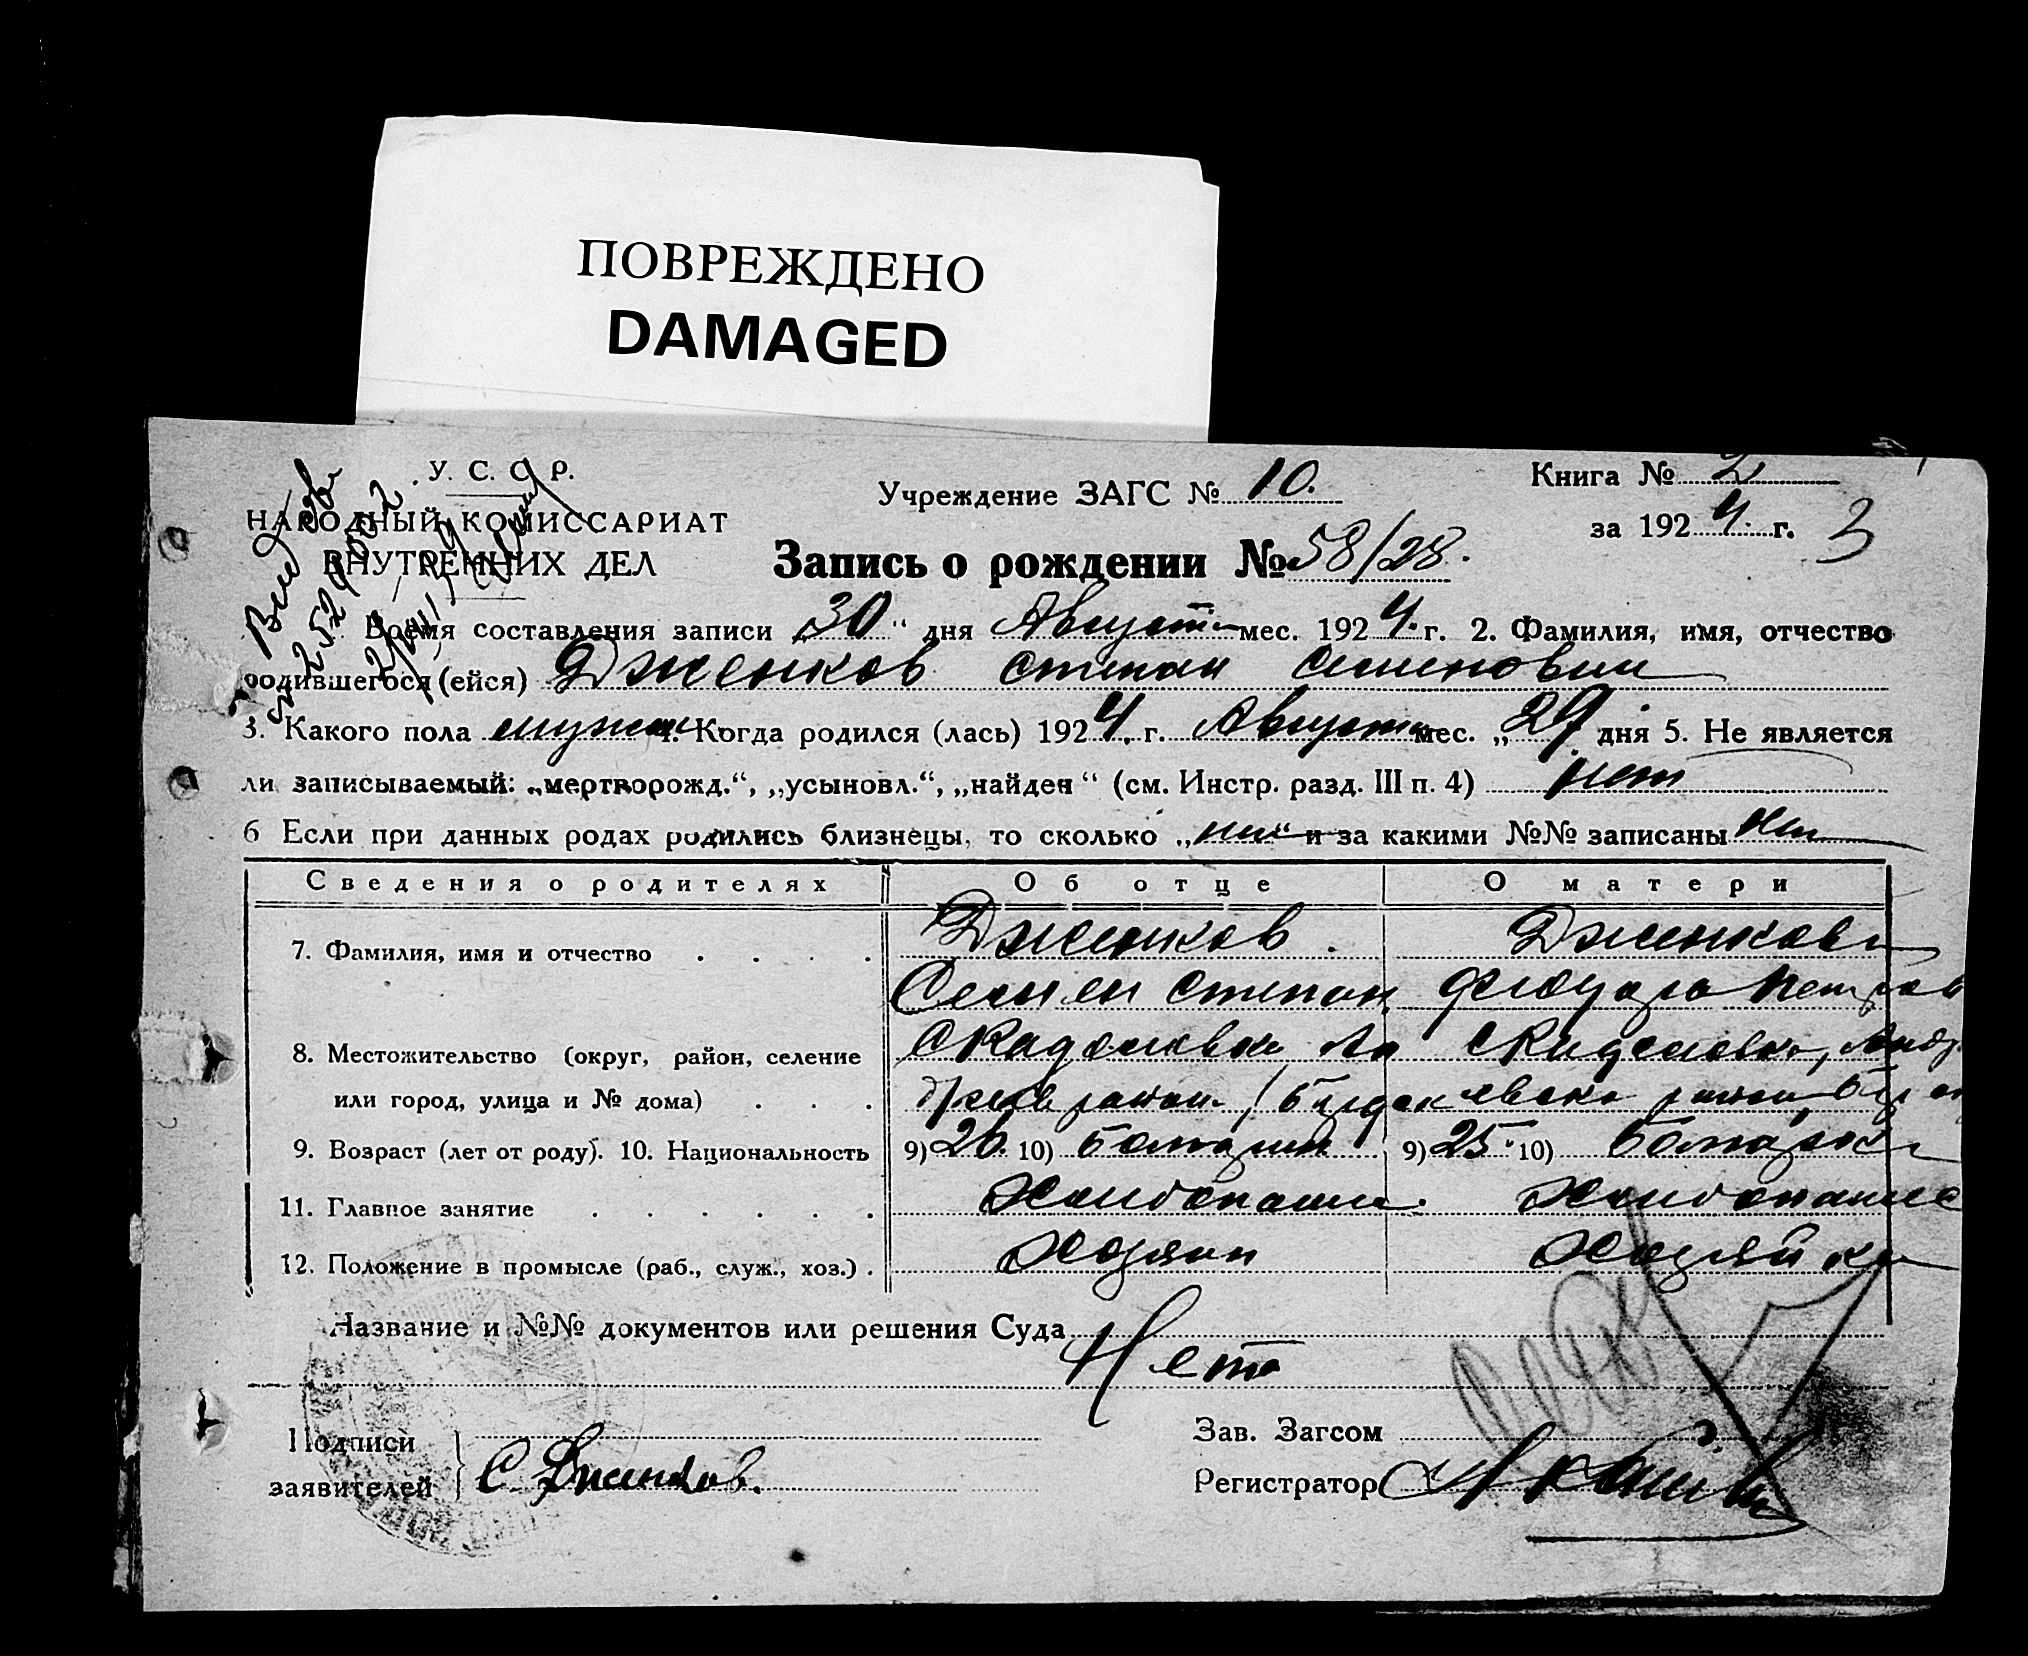 ПОВРЕЖДЕНО
DAMAGED
У. С. С. Р.
НАРОДНЫЙ КОМИССАРИАТ
ВНУТРЕННИХ ДЕЛ
Учреждение ЗАГС № 10.
Книга № 2
за 1924 г. 3
Запись о рождении № 58/28.
Время составления записи „30“ дня Августа мес. 1924. г. 2. Фамилия, имя, отчество
родившегося (ейся) Дженков Степан Семенович
3. Какого пола мужск 4. Когда родился (лась) 1924. г. Августа мес. „29 дня 5. Не является
ли записываемый: „мертворожд.“, „усыновл.“, „найден“ (см. Инстр. разд. III п. 4) нет
6 Если при данных родах родились близнецы, то сколько „нет“ и за какими №№ записаны нет
Сведения о родителях Об отце О матери
7. Фамилия, имя и отчество . . . . Дженков. Дженкова
Семен Степан Петров
8. Местожительство (округ, район, селение
или город, улица и № дома) . . . район район
9. Возраст (лет от роду). 10. Национальность 9) 26. 10) Болгарин 9) 25. 10) Болгарка
11. Главное занятие . . . . . . Хлебопаше. Хлебопаше
12. Положение в промысле (раб., служ., хоз.) . Хозяин Хозяйка
Название и №№ документов или решения Суда
Нет
Подписи
заявителей С. Дженков.
Зав. Загсом
Регистратор